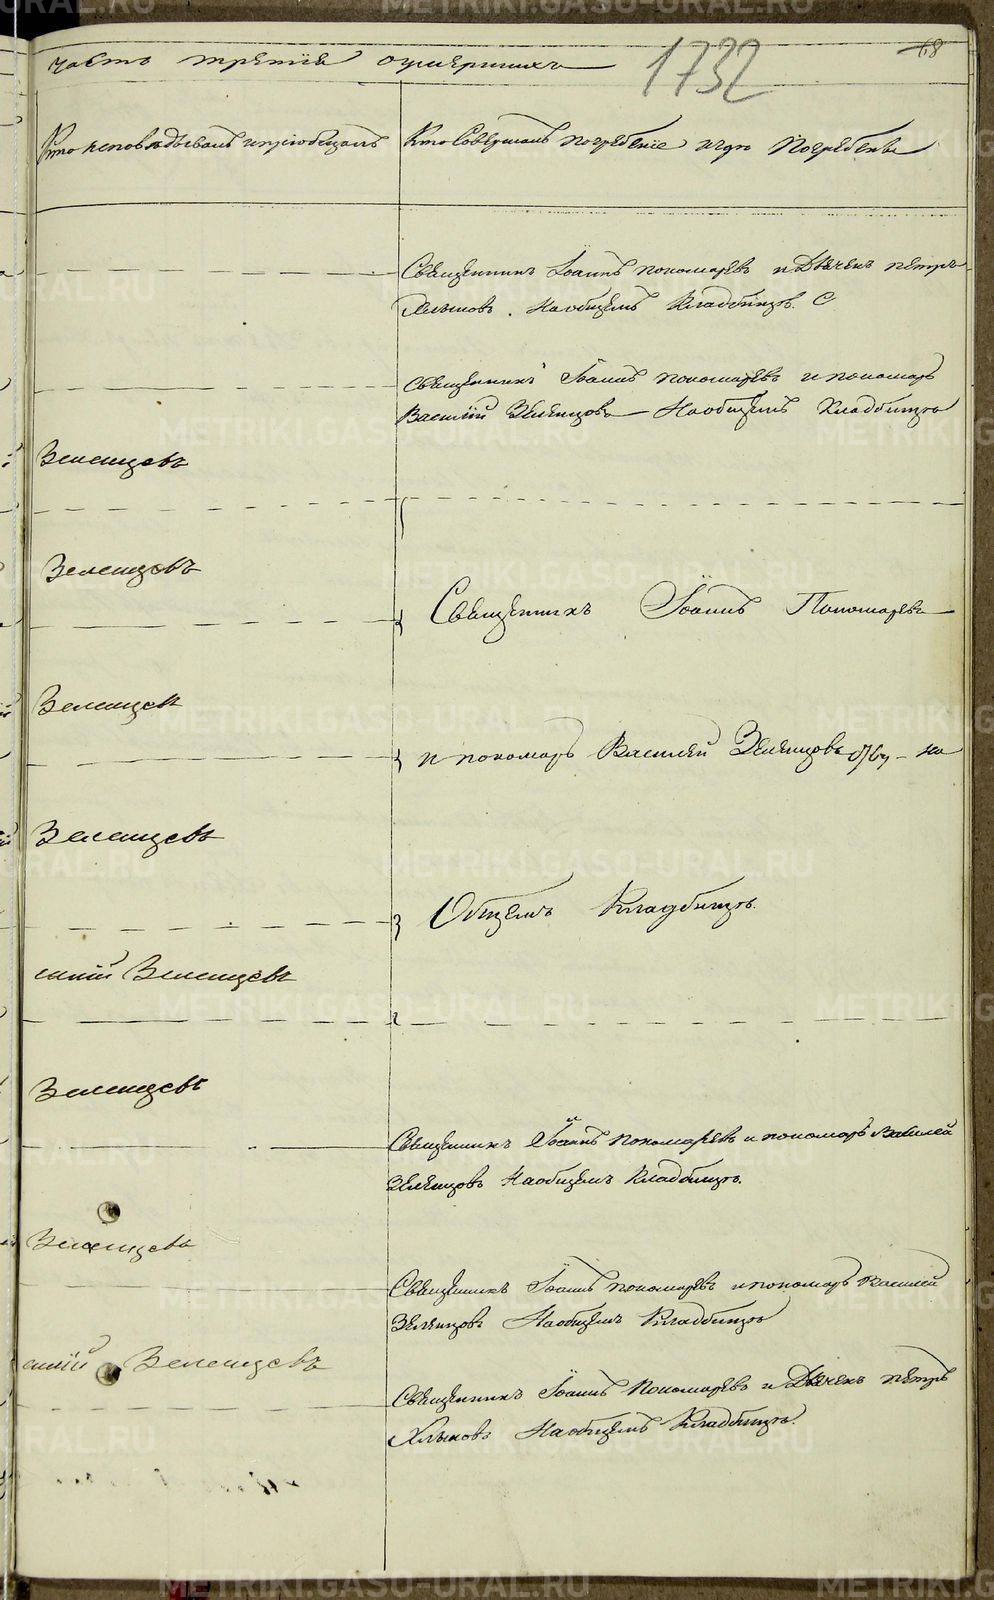 часть третія оумершихъ
1732
68
Кто исповѣдывалъ и пріобщалъ
Кто Совершалъ погребеніе и гдѣ Погребены
Священникъ Іоаннъ пономаревъ и Дьячекъ петръ
Хлыновъ. На общемъ Кладбищѣ. С
Священникъ Іоаннъ пономаревъ и пономарь
Василій Зеленцовъ На общемъ Кладбищѣ
Зеленцовъ
Зеленцовъ
Священникъ Іоаннъ Пономаревъ
Зеленцовъ
и пономарь Василей Зеленцовъ на
Зеленцовъ
Общемъ Кладбищѣ.
силій Зеленцовъ
Зеленцовъ
Священникъ Іоаннъ пономаревъ и пономарь Василей
Зеленцовъ На общемъ Кладбищѣ.
Зеленцовъ
Священникъ Іоаннъ пономаревъ и пономарь Василей
Зеленцовъ На общемъ Кладбищѣ
силій Зеленцовъ
Священникъ Іоаннъ Пономаревъ и Дьячекъ петръ
Хлыновъ На общемъ Кладбищѣ.
METRIKI.GASO-URAL.RU